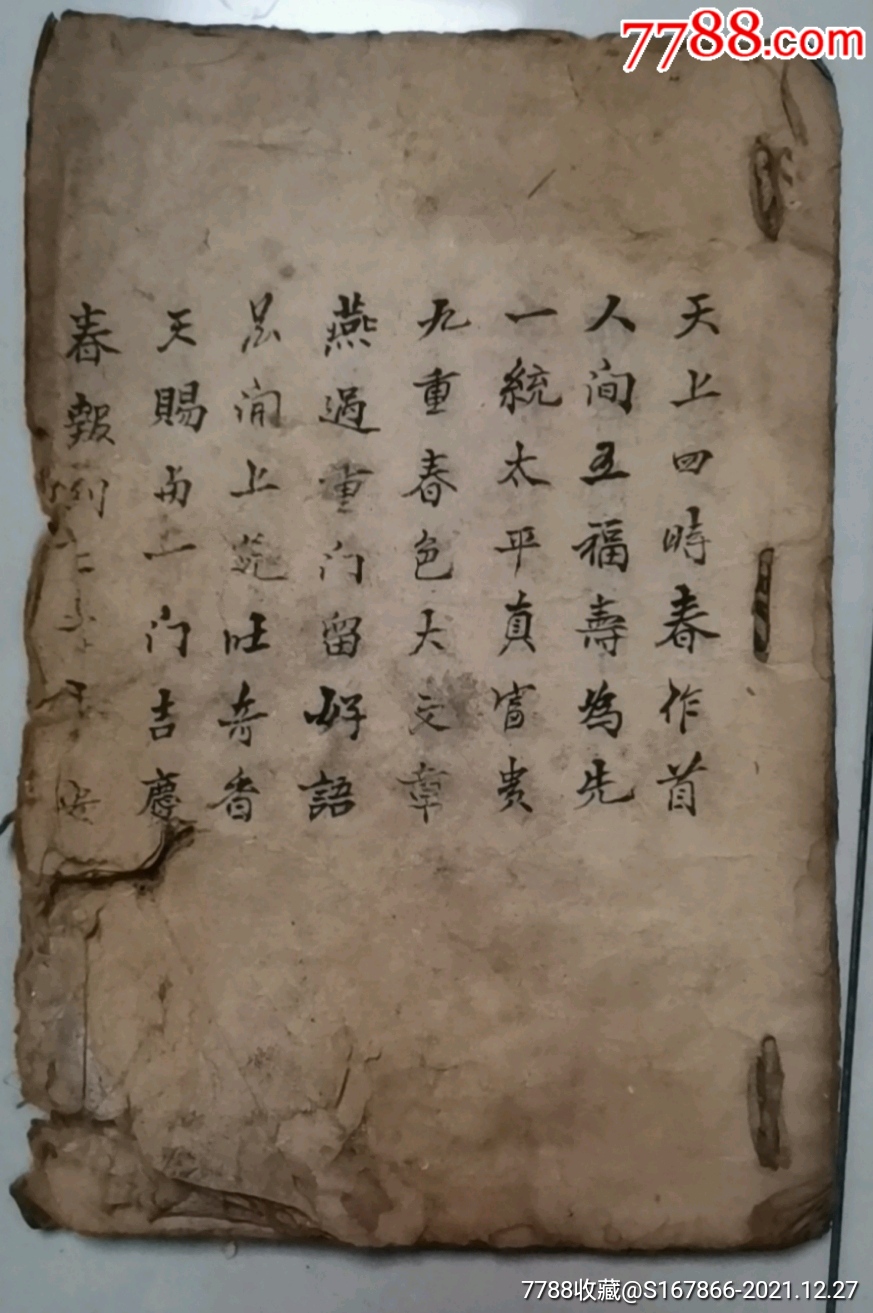 7788.com
天上四時春作首
人间五福壽為先
一統太平真富贵
九重春色大文章
燕過重门留好語
闻上苑旺奇香
天賜 一门吉慶
春報
7788收藏@S167866-2021.12.27